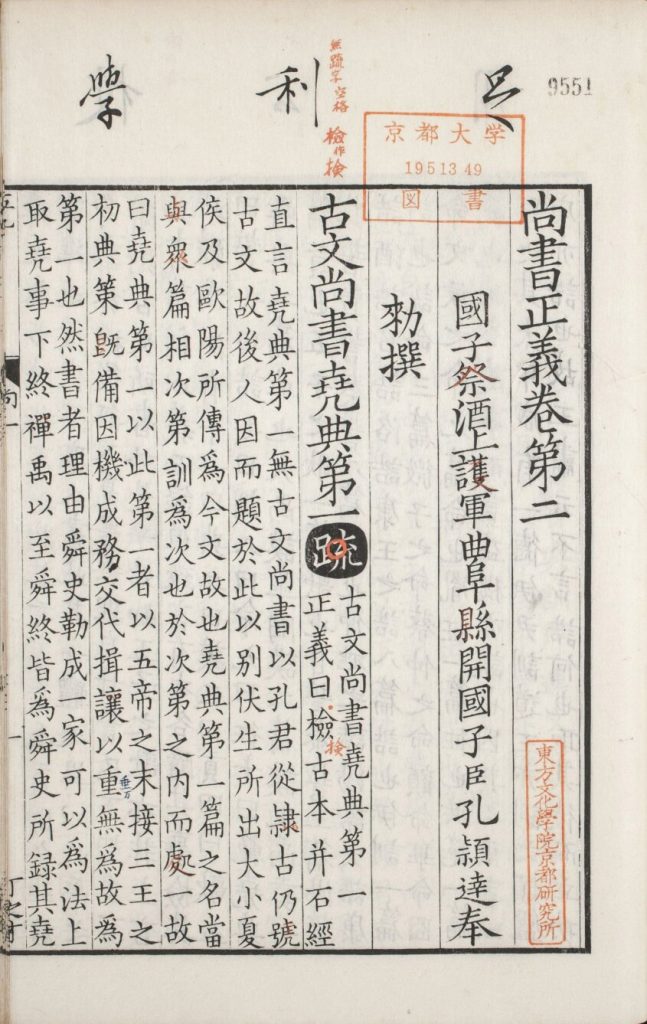 足利學
9551
無疏字空格
檢作検
京都大学
1951349
図書
尚書正義卷第二
國子祭酒上護軍曲阜縣開國子臣孔穎達奉
勑撰
古文尚書堯典第一 疏 古文尚書堯典第
正義曰檢古本并石經
検
直言堯典第一無古文尚書以孔君從隷古仍號
古文故後人因而題於此以別伏生所出大小夏
侯及歐陽所傳爲今文故也堯典第一篇之名當
與衆篇相次第訓爲次也於次第之內而處一故
曰堯典第一以此第一者以五帝之末接三王之
初典策旣備因機成務交代揖讓以重無爲故爲
第一也然書者理由舜史勒成一家可以爲法上
取堯事下終禪禹以至舜終皆爲舜史所録其堯
東方文化學院京都研究所
尚一